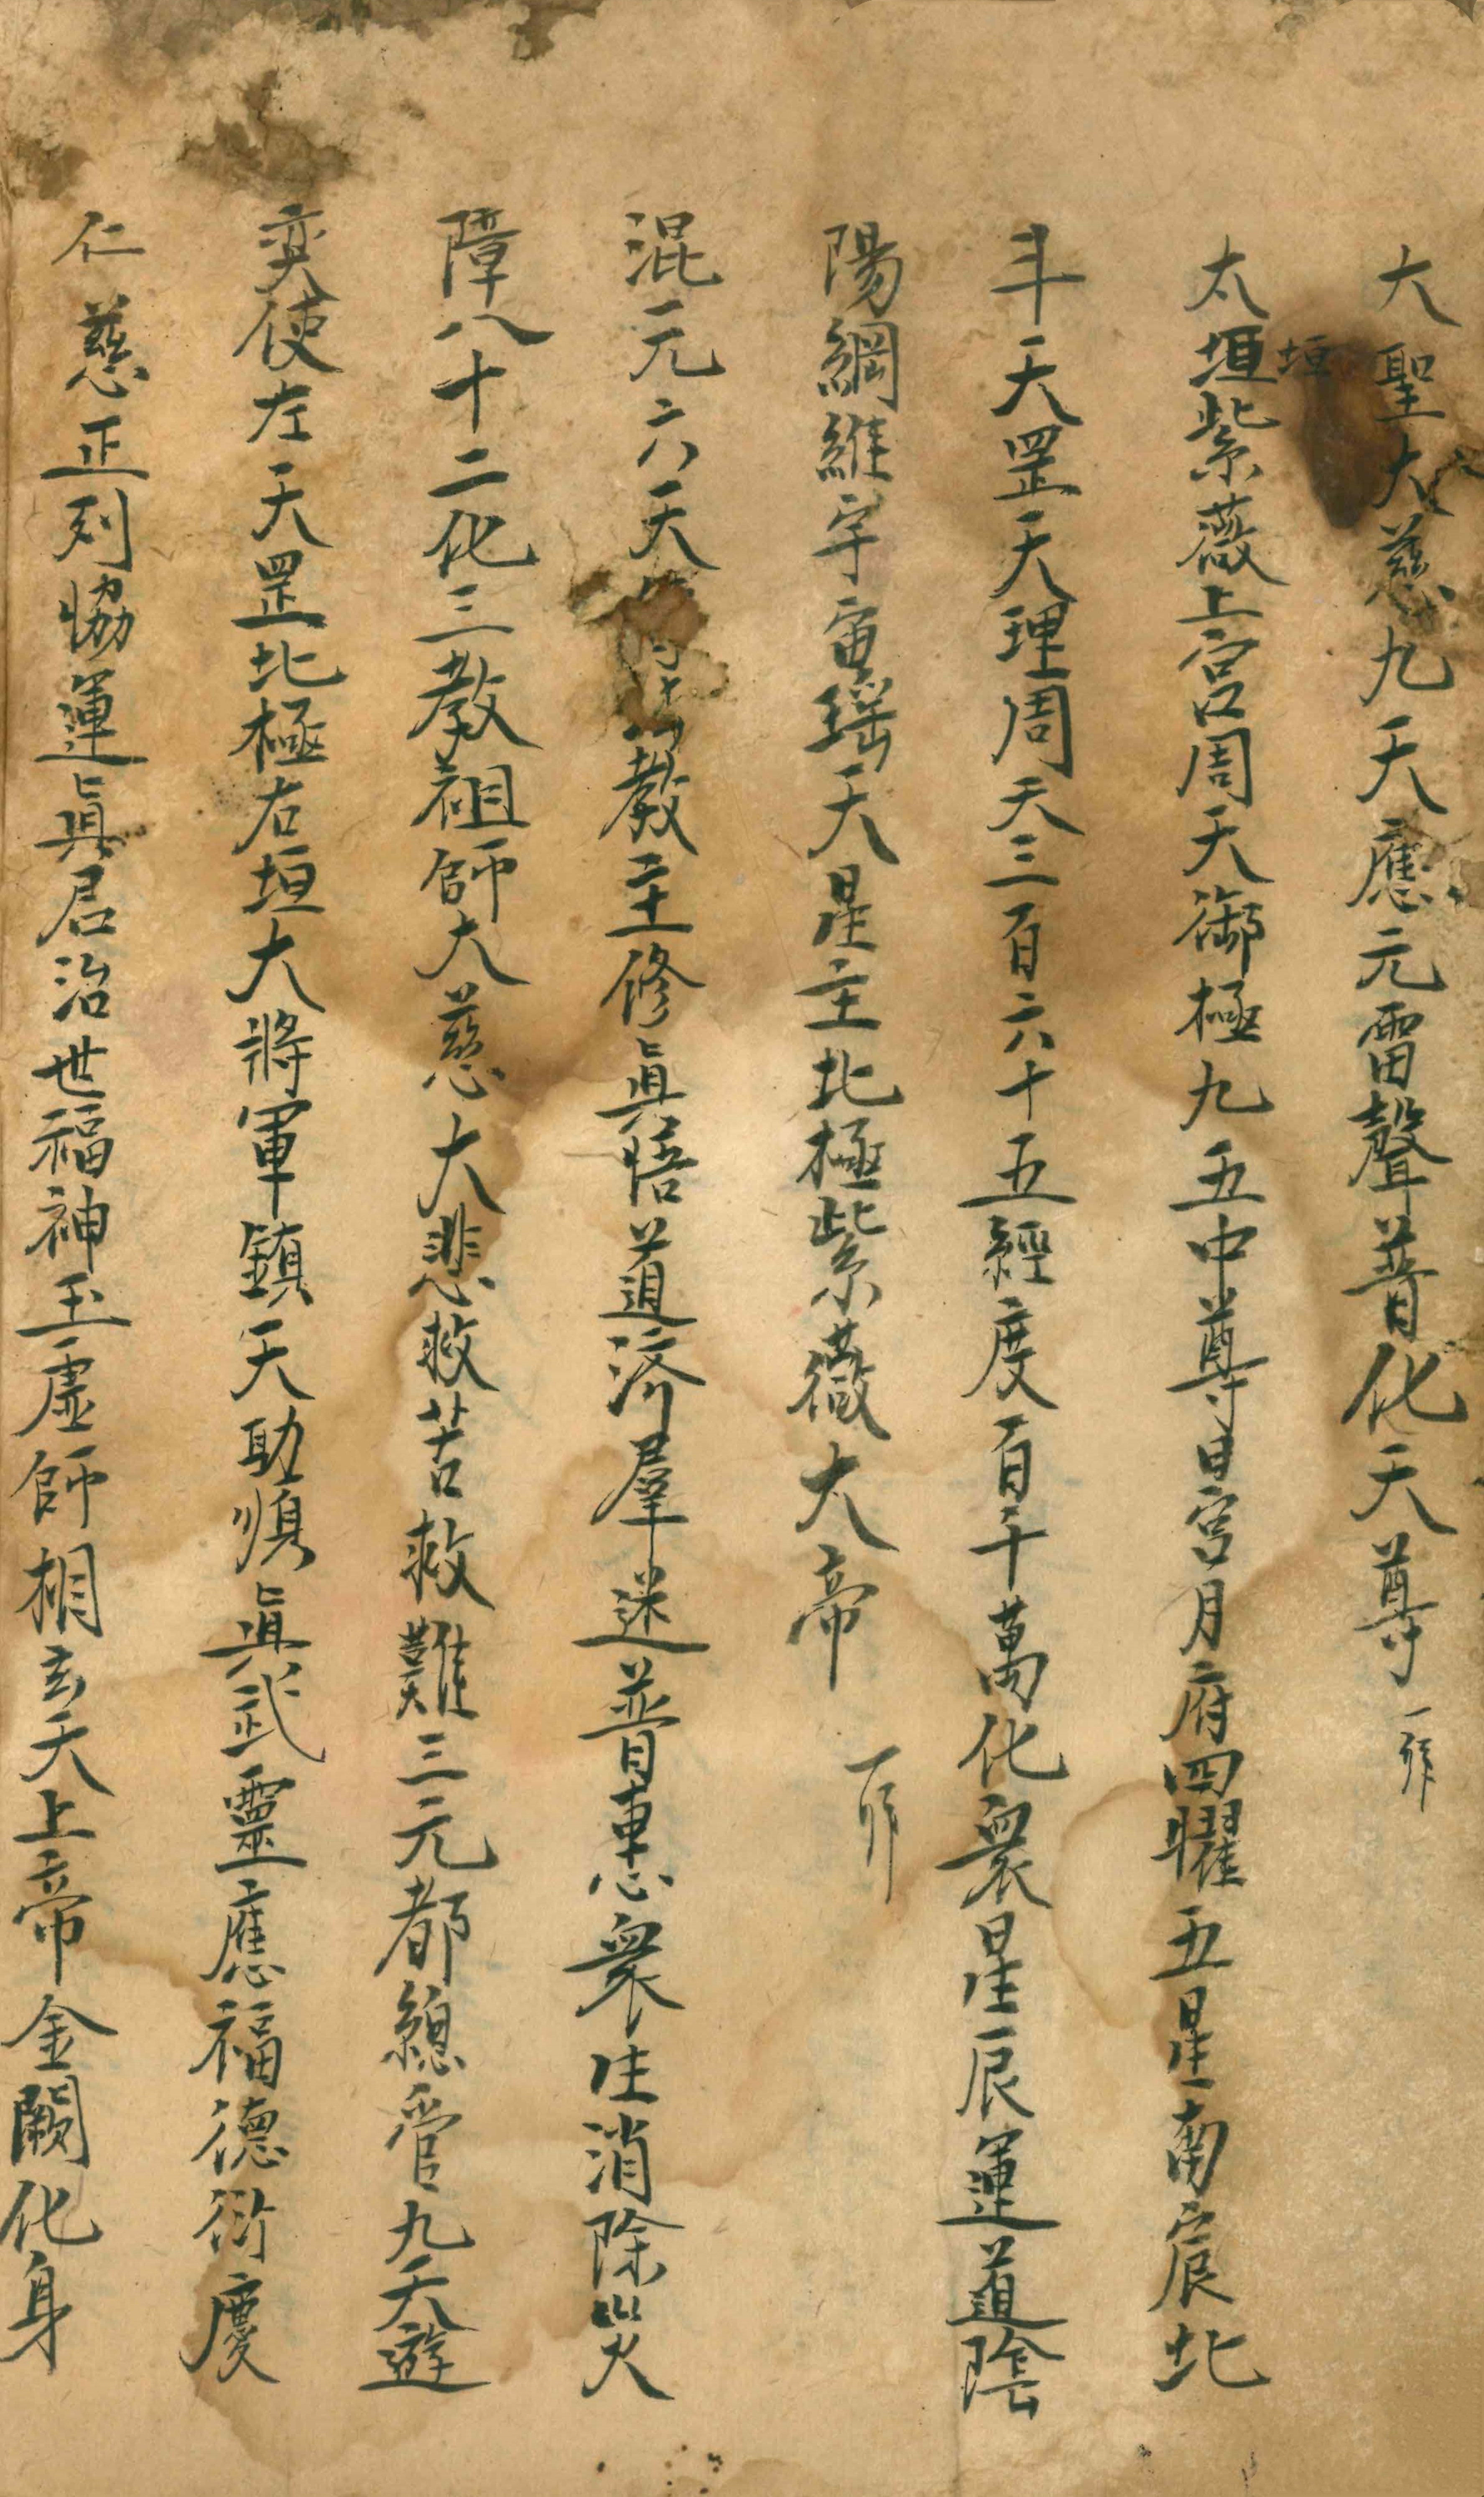 大聖大慈九天應元雷聲普化天尊 一拜
太垣紫薇上宮周天御極九五中尊日宮月府四曜五星南宸北
垣
斗天罡天理周天三百六十五經度百千萬化衆星辰運道陰
陽綱維宇宙瑤天星主北極紫薇大帝 一拜
混元六天教主修眞悟道济羣迷普惠衆生消除災
障八十二化三教祖師大慈大悲救苦救難三元都緫管九天遊
奕使左天罡北極右垣大將軍鎮天助順眞武靈應福德衍慶
仁慈正列恊運眞君治世福神玉虛師相玄天上帝金闕化身